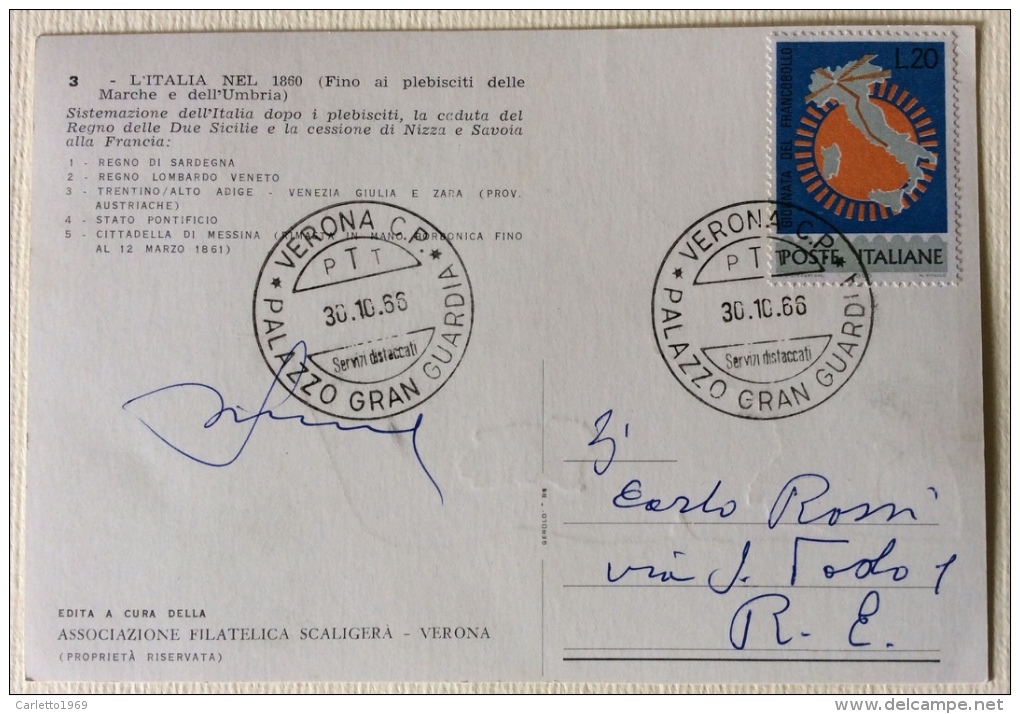 3 - L'ITALIA NEL 1860 (Fino ai plebisciti delle
Marche e dell'Umbria)
Sistemazione dell'Italia dopo i plebisciti, la caduta del
Regno delle Due Sicilie e la cessione di Nizza e Savoia
alla Francia:
1 - REGNO DI SARDEGNA
2 - REGNO LOMBARDO VENETO
3 - TRENTINO/ALTO ADIGE - VENEZIA GIULIA E ZARA (PROV.
AUSTRIACHE)
4 - STATO PONTIFICIO
5 - CITTADELLA DI MESSINA (RIMASTA IN MANO BORBONICA FINO
AL 12 MARZO 1861)
L.20
GIORNATA DEL FRANCOBOLLO
POSTE ITALIANE
* VERONA C.P. *
PTT
30.10.66
Servizi distaccati
PALAZZO GRAN GUARDIA
* VERONA C.P. *
PTT
30.10.66
Servizi distaccati
PALAZZO GRAN GUARDIA
Carlo Rossi
via S. Todo 1
R. E.
EDITA A CURA DELLA
ASSOCIAZIONE FILATELICA SCALIGERA - VERONA
(PROPRIETÀ RISERVATA)
Carletto1969
delcampe.net